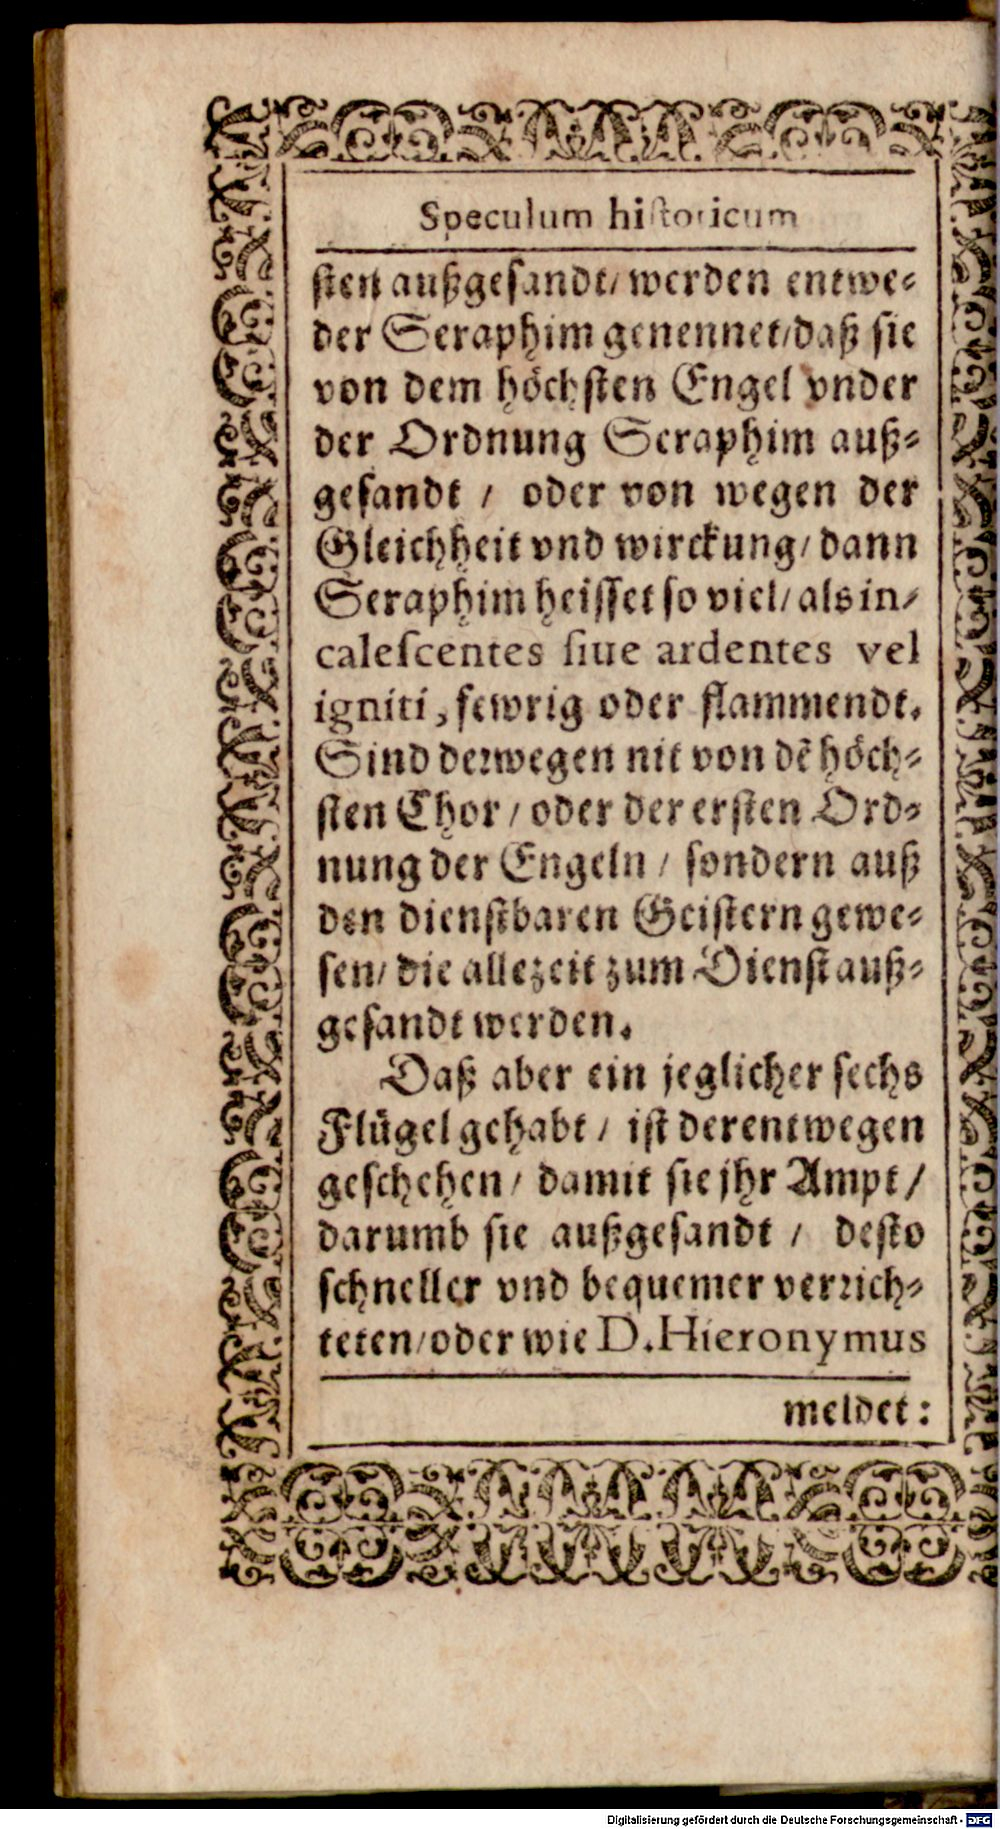 Speculum historicum
sten außgesandt/ werden entwe⸗
der Seraphim genennet/daß sie
von dem höchsten Engel vnder
der Ordnung Seraphim auß⸗
gesandt / oder von wegen der
Gleichheit vnd wirckung/ dann
Seraphim heisset so viel/ als in⸗
calescentes siue ardentes vel
igniti, fewrig oder flammendt.
Sind derwegen nit von dẽ höch⸗
sten Chor / oder der ersten Ord⸗
nung der Engeln / sondern auß
den dienstbaren Geistern gewe⸗
sen/ die allezeit zum Dienst auß⸗
gesandt werden.
Daß aber ein jeglicher sechs
Flügel gehabt / ist derentwegen
geschehen / damit sie jhr Ampt /
darumb sie außgesandt / desto
schneller vnd bequemer verrich⸗
teten/oder wie D. Hieronymus
meldet:
Digitalisierung gefördert durch die Deutsche Forschungsgemeinschaft - DFG